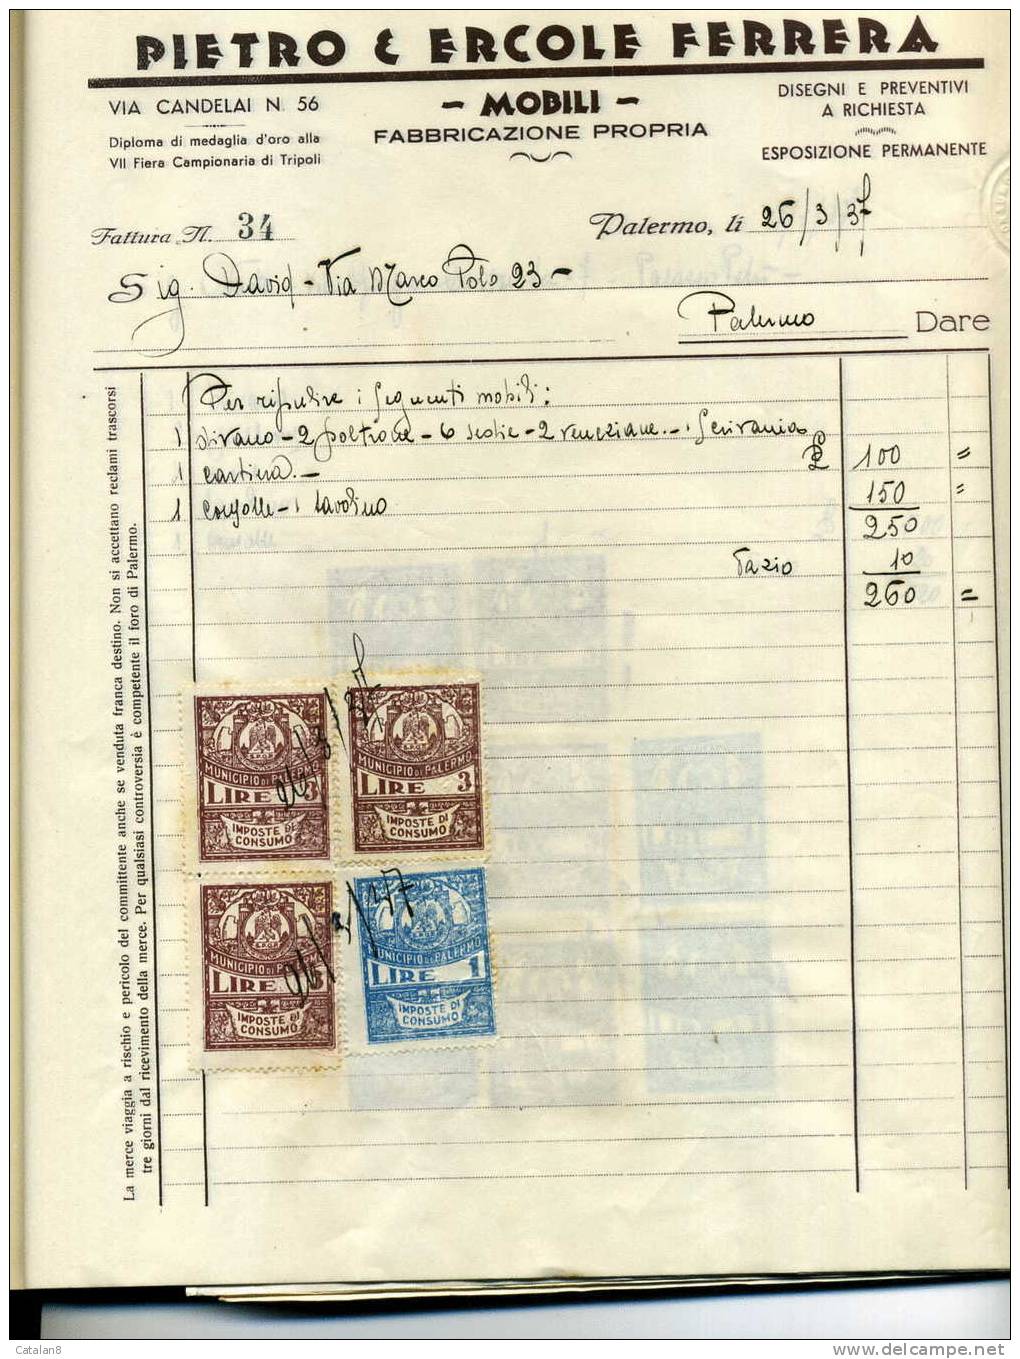 PIETRO E ERCOLE FERRERA
VIA CANDELAI N. 56
Diploma di medaglia d'oro alla
VII Fiera Campionaria di Tripoli
- MOBILI -
FABBRICAZIONE PROPRIA
DISEGNI E PREVENTIVI
A RICHIESTA
ESPOSIZIONE PERMANENTE
Fattura N. 34
Palermo, lì 26/3/37
Sig. David - Via Marco Polo 23 -
Palermo Dare
Per ripulire i seguenti mobili:
1 divano - 2 poltrone - 6 sedie - 2 veneziane. - 1 scrivania
1 £ 100 =
150 =
1 1 tavolino
250
Dazio 10
260 =
La merce viaggia a rischio e pericolo del committente anche se venduta franca destino. Non si accettano reclami trascorsi
tre giorni dal ricevimento della merce. Per qualsiasi controversia è competente il foro di Palermo.
MUNICIPIO DI PALERMO
LIRE 3
IMPOSTE DI
CONSUMO
26/3/37
MUNICIPIO DI PALERMO
LIRE 3
IMPOSTE DI
CONSUMO
MUNICIPIO DI PALERMO
LIRE
IMPOSTE DI
CONSUMO
26/3/37
MUNICIPIO DI PALERMO
LIRE 1
IMPOSTE DI
CONSUMO
Catalan8
www.delcampe.net